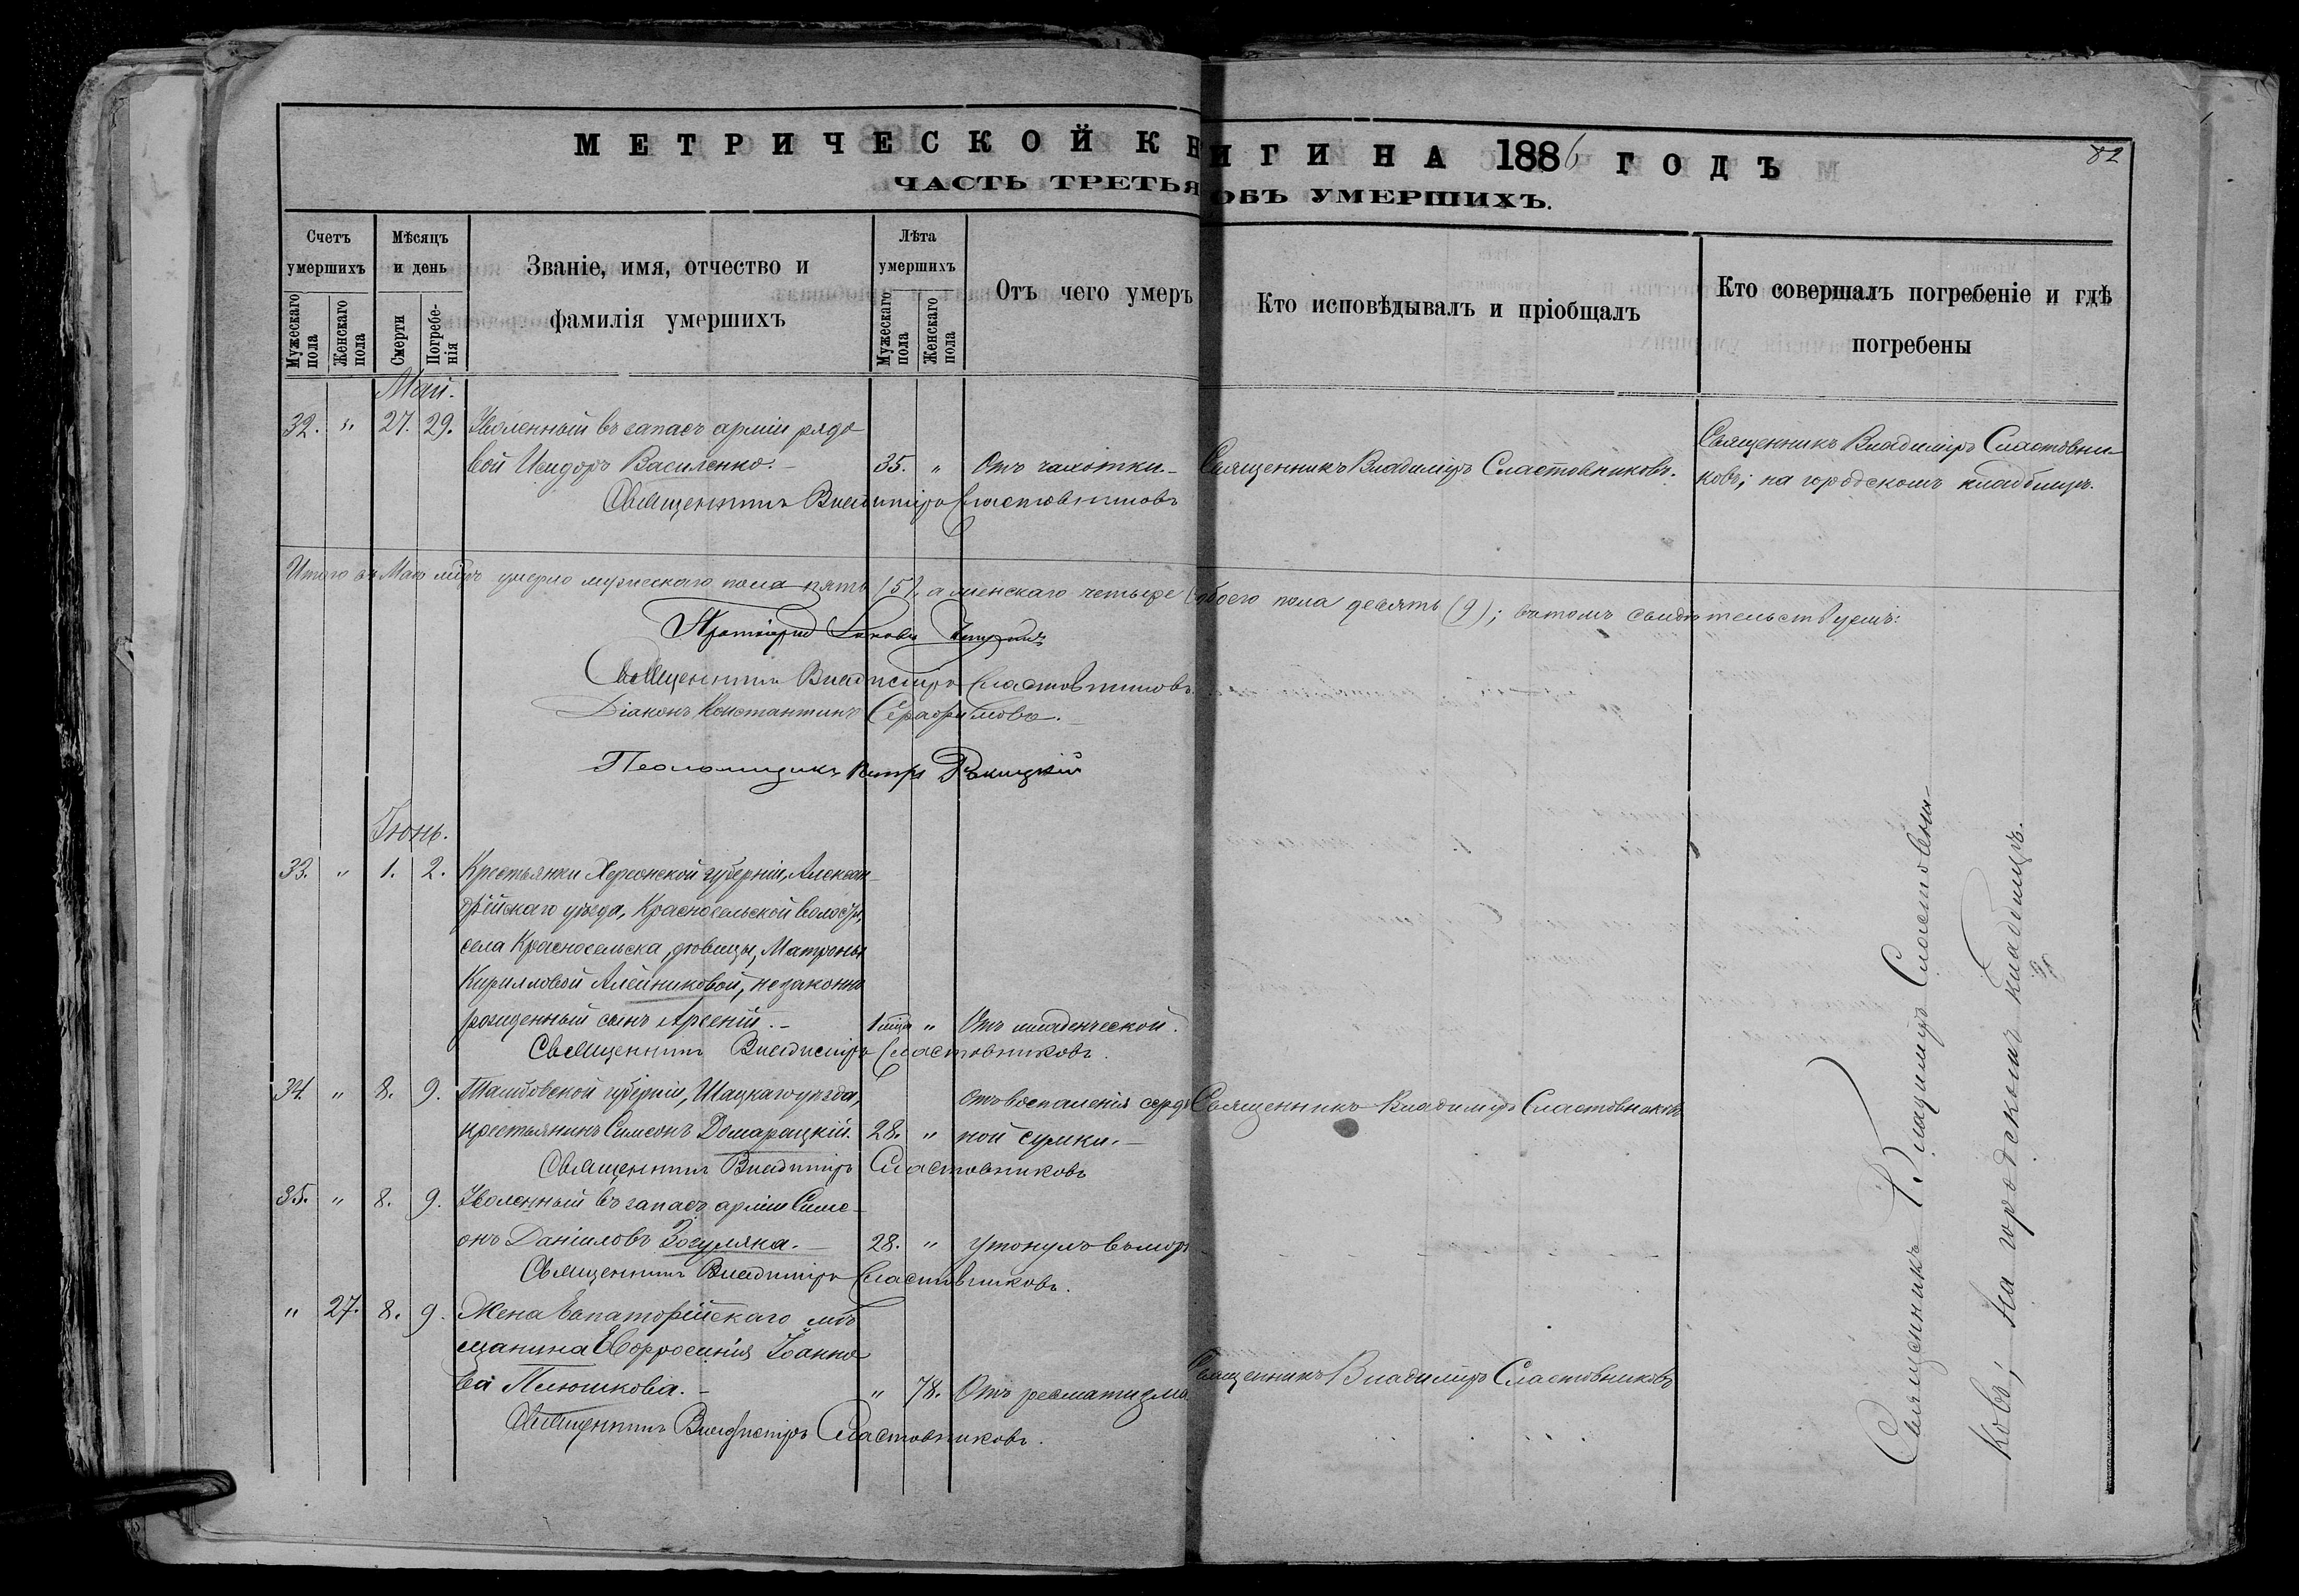 МЕТРИЧЕСКОЙ КНИГИ НА 1886 ГОДЪ
82
ЧАСТЬ ТРЕТЬЯ ОБЪ УМЕРШИХЪ.
Счетъ умершихъ
Мужескаго пола
Женскаго пола
Мѣсяцъ и день
Смерти
Погребе-
нія
Званіе, имя, отчество и
фамилія умершихъ
Лѣта умершихъ
Мужескаго пола
Женскаго пола
Отъ чего умеръ
Кто исповѣдывалъ и пріобщалъ
Кто совершалъ погребеніе и гдѣ
погребены
Май.
32. " 27. 29. Уволенный въ запасъ арміи рядо-
вой Исидоръ Василенко. 35. " Отъ чахотки. Священникъ Владиміръ Сластовниковъ.
Священникъ Владиміръ Сластовни-
ковъ; на городскомъ кладбищѣ.
Священникъ Владиміръ Сластовниковъ
Итого въ Маѣ мѣсяцѣ умерло мужескаго пола пять (5), а женскаго четыре обоего пола девять (9); въ томъ свидѣтельствуемъ:
Протоіерей Іаковъ
Священникъ Владиміръ Сластовниковъ
Діаконъ Константинъ Серафимовъ.
Псаломщикъ Петръ Ракицкій
Іюнь.
33. " 1. 2. Крестьянки Херсонской губерніи, Александ-
рійскаго уѣзда, Красносельской волости,
села Красносельска, вдовицы, Матроны
Кирилловой Алейниковой, незаконно
рожденный сынъ Арсеній. 1 мѣсяца " Отъ младенческой.
Священникъ Владиміръ Сластовниковъ.
34. " 8. 9. Тамбовской губерніи, Шацкаго уѣзда, Отъ воспаленія серд- Священникъ Владиміръ Сластовниковъ
крестьянинъ Симеонъ Домарацкій. 28. " ной сумки.
Священникъ Владиміръ Сластовниковъ
35. " 8. 9. Уволенный въ запасъ арміи Симе-
онъ Даніиловъ Загуляка. 28. " Утонулъ въ морѣ
Священникъ Владиміръ Сластовниковъ.
" 27. 8. 9. Жена Евпаторійскаго мѣ-
щанина Евфросинія Іоанно-
ва Плюшкова. " 78. Отъ ревматизма. Священникъ Владиміръ Сластовниковъ
Священникъ Владиміръ Сластовниковъ.
Священникъ Владиміръ Сластовни-
ковъ; на городскомъ кладбищѣ.